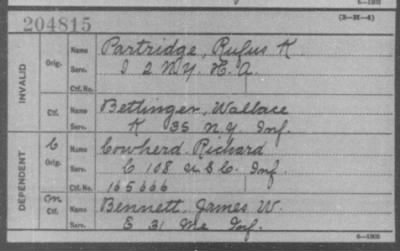 6-1902
204815
(3-M-4)
INVALID
Orig.
Name Partridge, Rufus K
Serv. I 2 N.Y. H. A.
Ctf. No.
Ctf.
Name Bettinger, Wallace
Serv. K 35 N.Y. Inf.
DEPENDENT
C
Orig.
Name Cowherd Richard
Serv. C 108 U S C. Inf
Ctf. No. 165666
Ctf.
Name Bennett, James W.
Serv. E 31 Me Inf.
6-1902